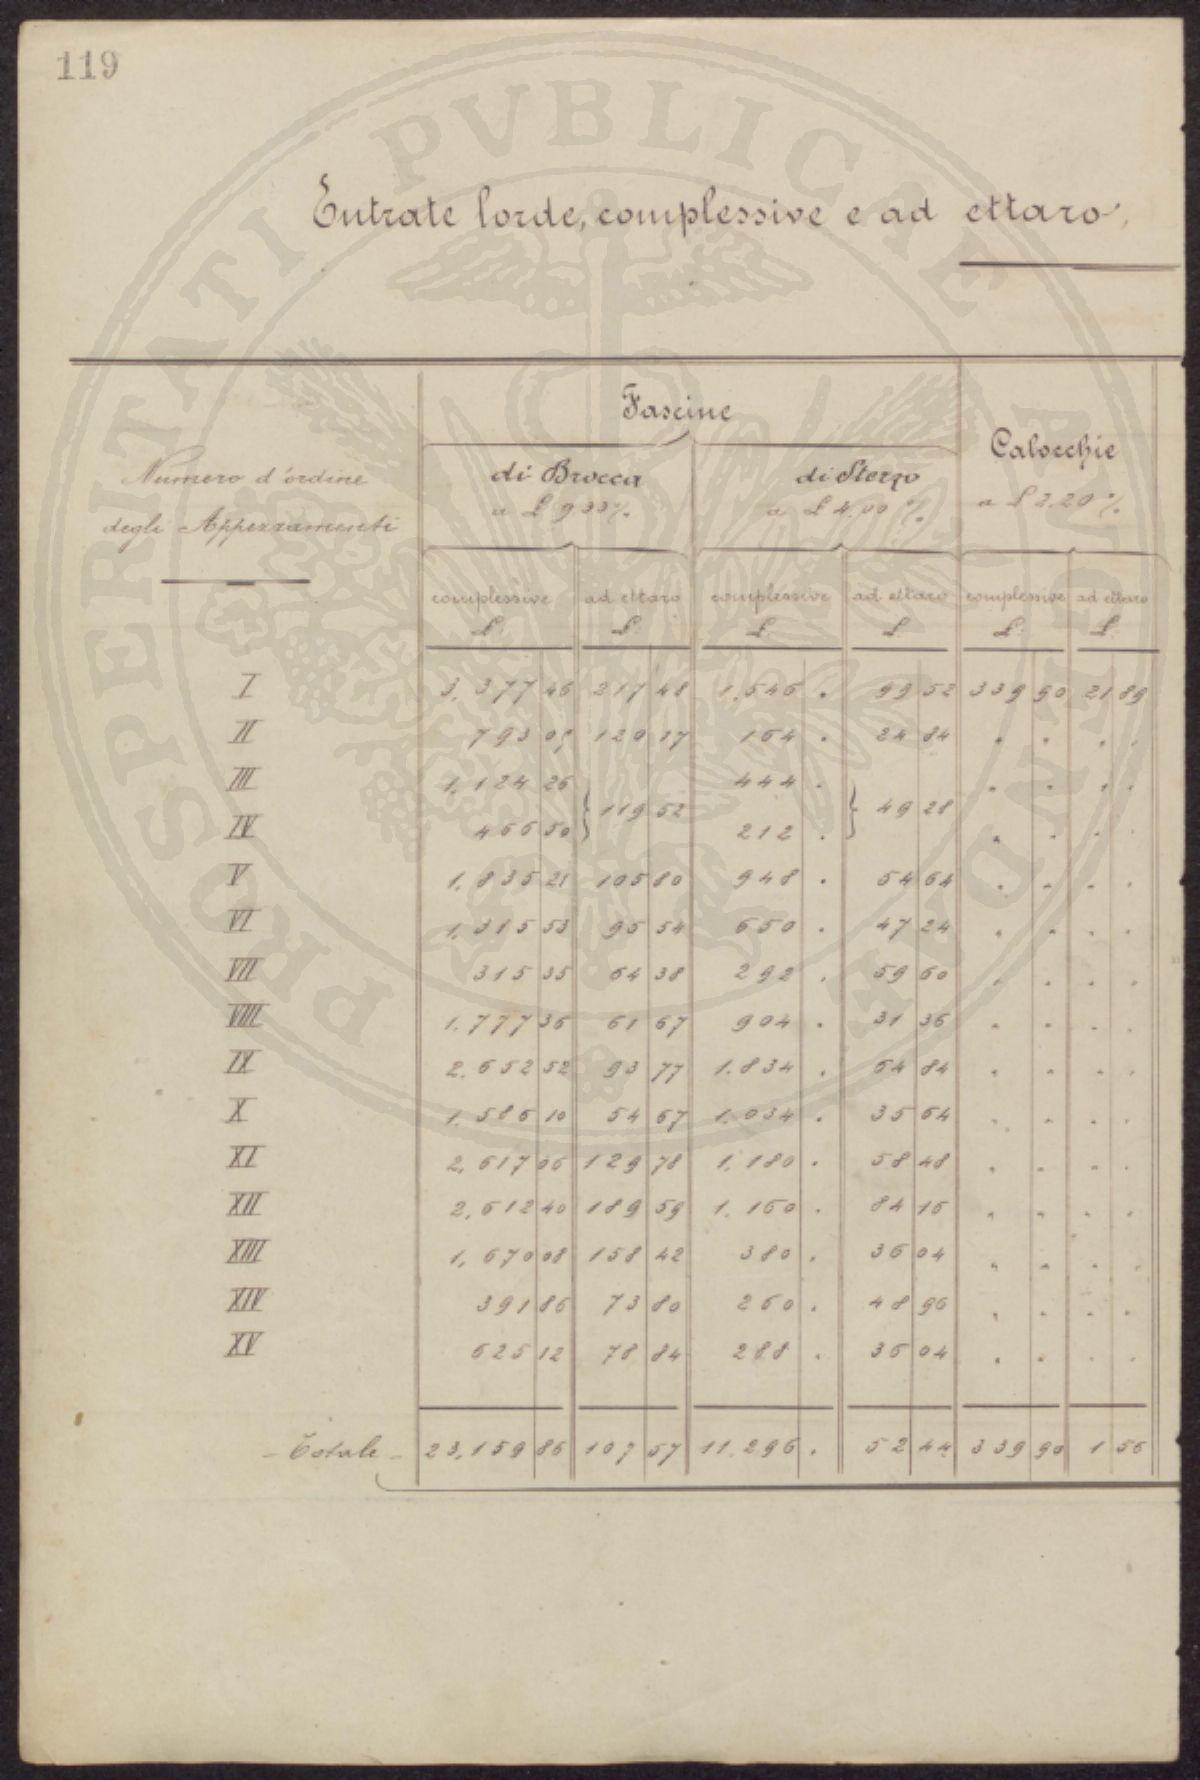 119
PROSPERITATI PVBLICAE AVGENDAE
Entrate lorde, complessive e ad ettaro.
Fascine
Calocchie
Numero d'ordine
degli Appezzamenti
di Brocca
a £ 9.33 %
di Sterzo
a £ 4.00 %
a £ 2.20 %
complessive ad ettaro complessive ad ettaro complessive ad ettaro
£ £ £ £ £ £
I 3,377 46 217 48 1,546 . 99 52 339 90 21 89
II 793 05 120 17 164 . 24 84 . . . .
III 1,124 26 444 . . . . .
} 119 52 } 49 28
IV 466 50 212 . . . . .
V 1,835 21 105 80 948 . 54 64 . . . .
VI 1,315 53 95 54 650 . 47 24 . . . .
VII 315 35 64 38 292 . 59 60 . . . .
VIII 1,777 36 61 67 904 . 31 36 . . . .
IX 2.652 52 93 77 1.834 . 64 84 . . . .
X 1.586 10 54 67 1.034 . 35 64 . . . .
XI 2,617 06 129 78 1,180 . 58 48 . . . .
XII 2,612 40 189 59 1.160 . 84 16 . . . .
XIII 1,670 08 158 42 380 . 36 04 . . . .
XIV 391 86 73 80 260 . 48 96 . . . .
XV 625 12 78 84 288 . 36 04 . . . .
- Totale - 23,159 86 107 57 11.296 . 52 44 339 90 1 56